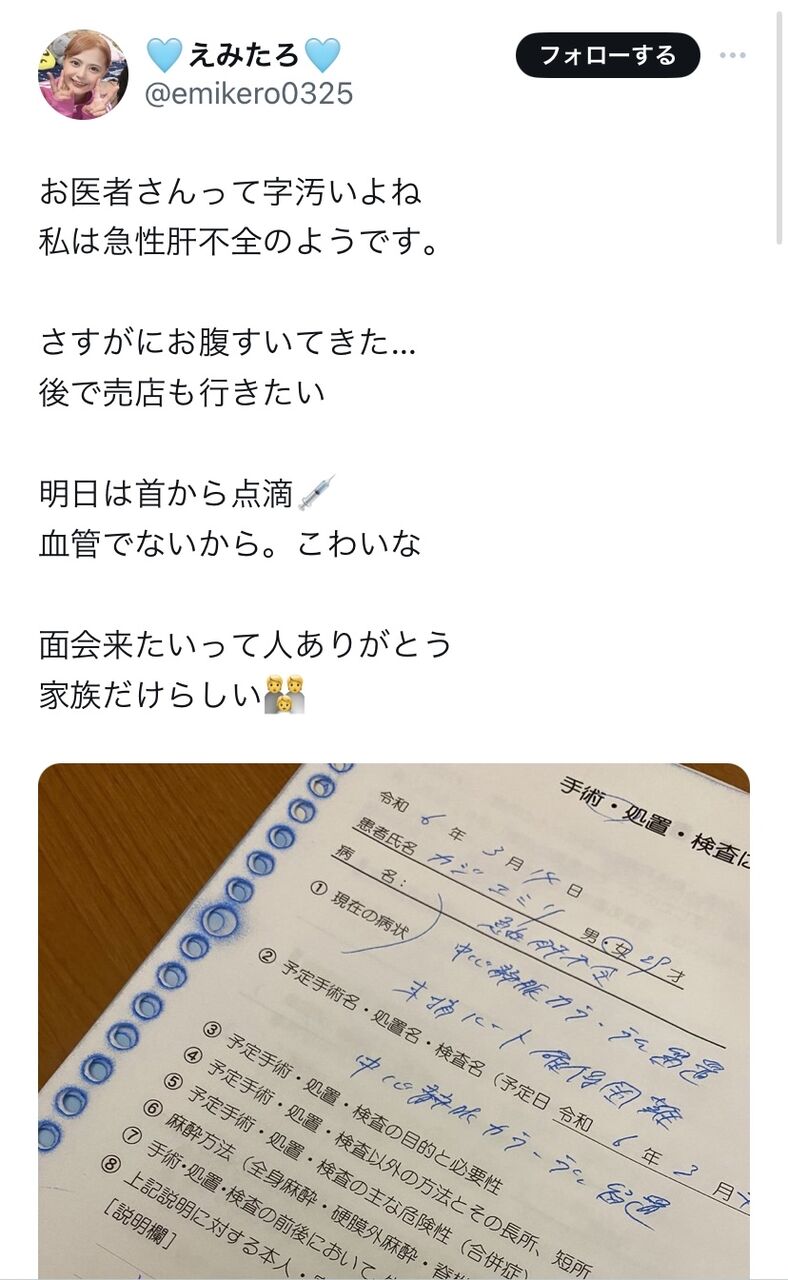 🩵えみたろ🩵
フォローする
@emikero0325
お医者さんって字汚いよね
私は急性肝不全のようです。
さすがにお腹すいてきた...
後で売店も行きたい
明日は首から点滴💉
血管でないから。こわいな
面会来たいって人ありがとう
家族だけらしい👨‍👩‍👦
手術・処置・検査に
令和 6 年 3 月 14 日
患者氏名 カジ エミリ 男・女 29 才
病 名： 急性肝不全
① 現在の病状 中心静脈カテーテル留置
末梢ルート確保困難
② 予定手術名・処置名・検査名（予定日 令和 6 年 3 月
中心静脈カテーテル留置
③ 予定手術・処置・検査の目的と必要性
④ 予定手術・処置・検査以外の方法とその長所、短所
⑤ 予定手術・処置・検査の主な危険性（合併症）
⑥ 麻酔方法（全身麻酔・硬膜外麻酔・脊
⑦ 手術・処置・検査の前後において
⑧ 上記説明に対する本人・
［説明欄］